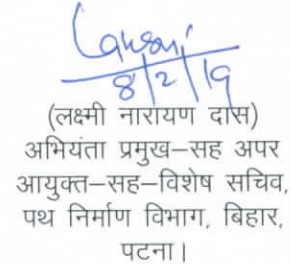 Laxmi
8/2/19
(लक्ष्मी नारायण दास)
अभियंता प्रमुख–सह अपर
आयुक्त–सह–विशेष सचिव,
पथ निर्माण विभाग, बिहार,
पटना।